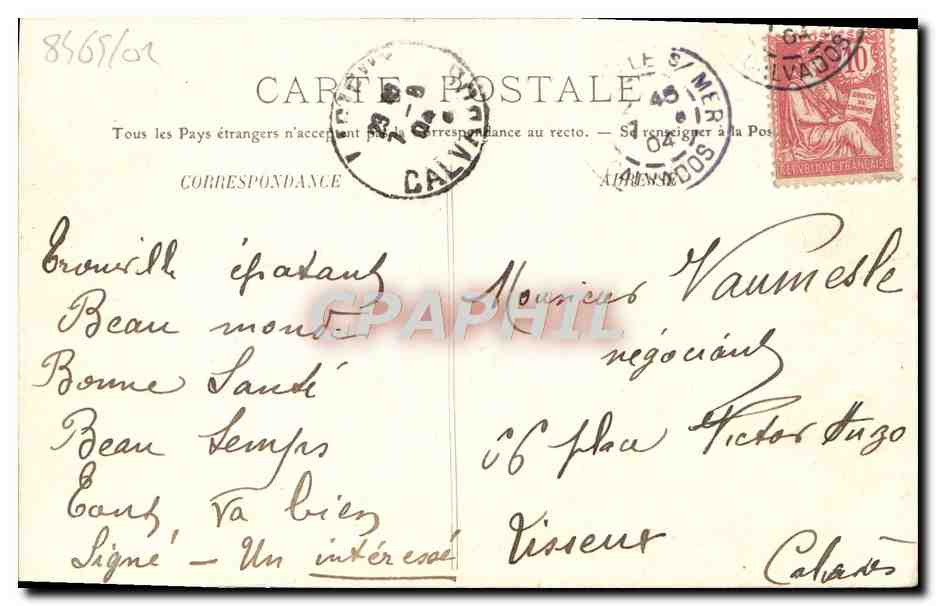 8565/02
CARTE POSTALE
Tous les Pays étrangers n'acceptent pas la correspondance au recto. — Se renseigner à la Pos
CORRESPONDANCE
ADRESSE
LE S/ MER
45
04
CALVADOS
CALVADOS
23
7-8
04
CALVA
10
REPUBLIQUE FRANÇAISE
Trouville épatant
Beau monde
Bonne Santé
Beau temps
Tout va bien
Signé — Un intéressé
Monsieur Vaumesle
négociant
66 place Victor Hugo
Lisieux
Calvados
CPAPHIL